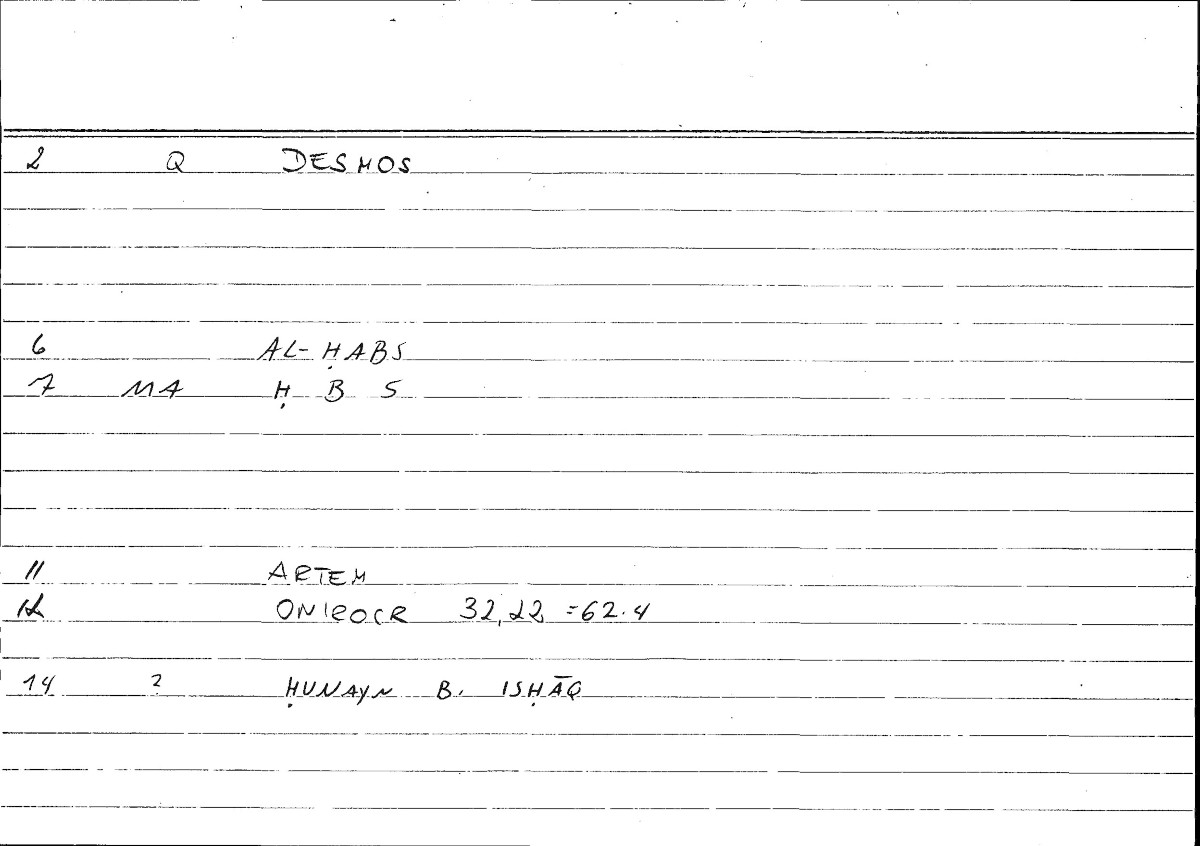 2 Q DESMOS
6 AL-ḤABS
7 MA Ḥ B S
11 ARTEM
12 ONIROCR 32,22 =62.4
14 2 ḤUNAYN B. ISḤĀQ